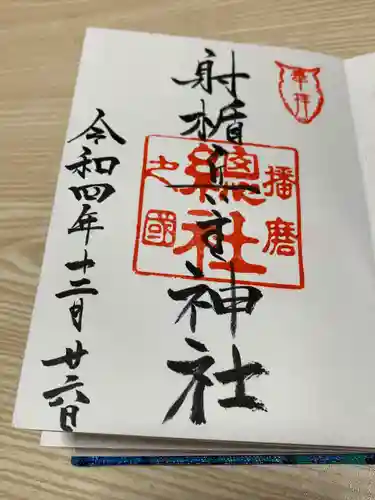 奉拝
射楯兵主神社
播磨
總社
之國
令和四年十二月廿六日